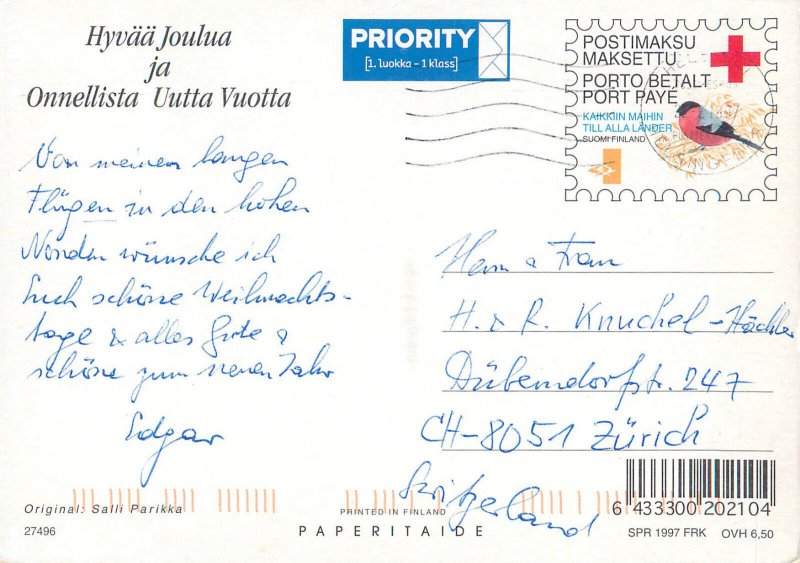 Hyvää Joulua
ja
Onnellista Uutta Vuotta
PRIORITY
[1. luokka - 1 klass]
POSTIMAKSU
MAKSETTU
PORTO BETALT
PORT PAYÉ
KAIKKIIN MAIHIN
TILL ALLA LÄNDER
SUOMI FINLAND
Von meinen langen
Flügen in den hohen
Norden wünsche ich
Euch schöne Weihnachts-
tage & alles Gute &
schöne zum neuen Jahr
Edgar
Herrn & Frau
H. & R. Knuchel-Hächler
Dübendorfstr. 247
CH-8051 Zürich
Switzerland
Original: Salli Parikka
27496
PRINTED IN FINLAND
PAPERITAIDE
6 433300 202104
SPR 1997 FRK OVH 6,50